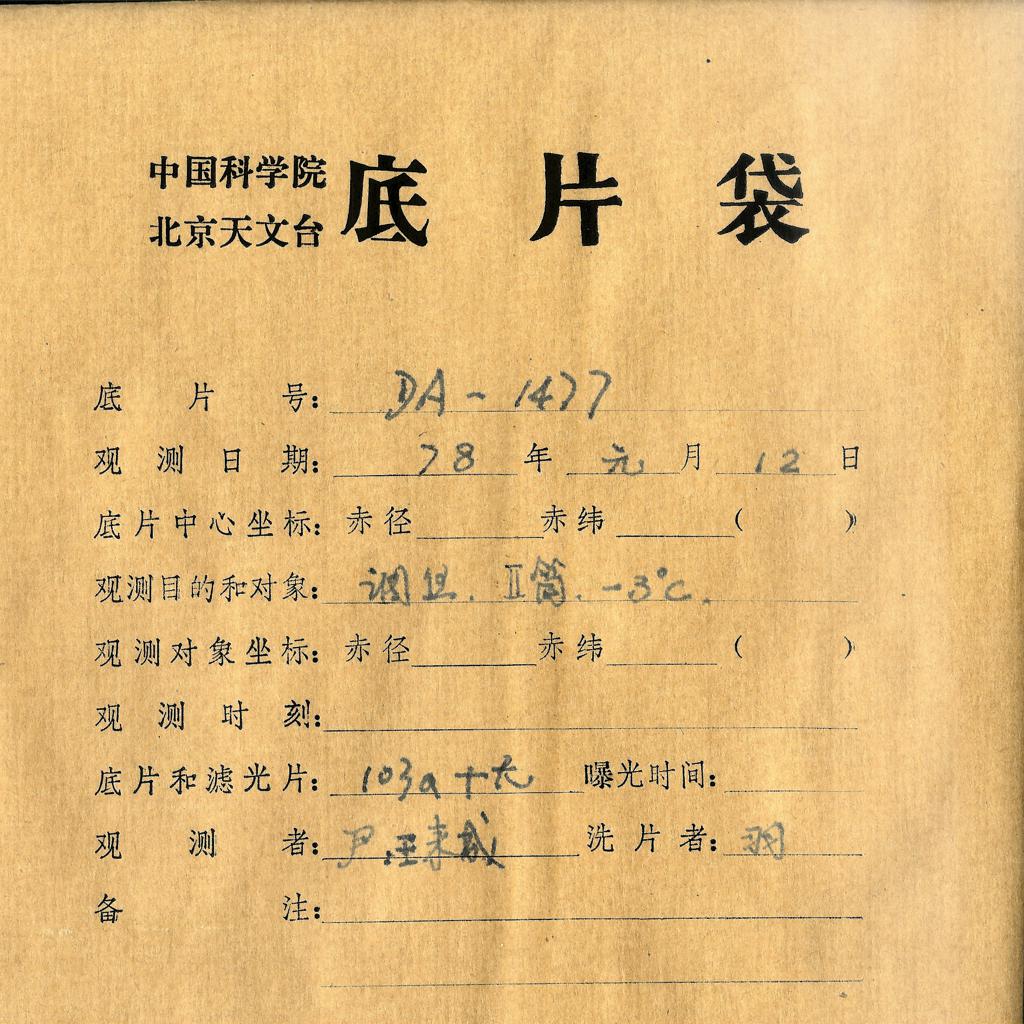 中国科学院
北京天文台
底片袋
底片号: DA-1477
观测日期: 78年元月12日
底片中心坐标: 赤径 赤纬 ( )
观测目的和对象: 调焦. II筒. -3°C.
观测对象坐标: 赤径 赤纬 ( )
观测时刻:
底片和滤光片: 103a+无 曝光时间:
观测者: 尹.王来成 洗片者:
备注: